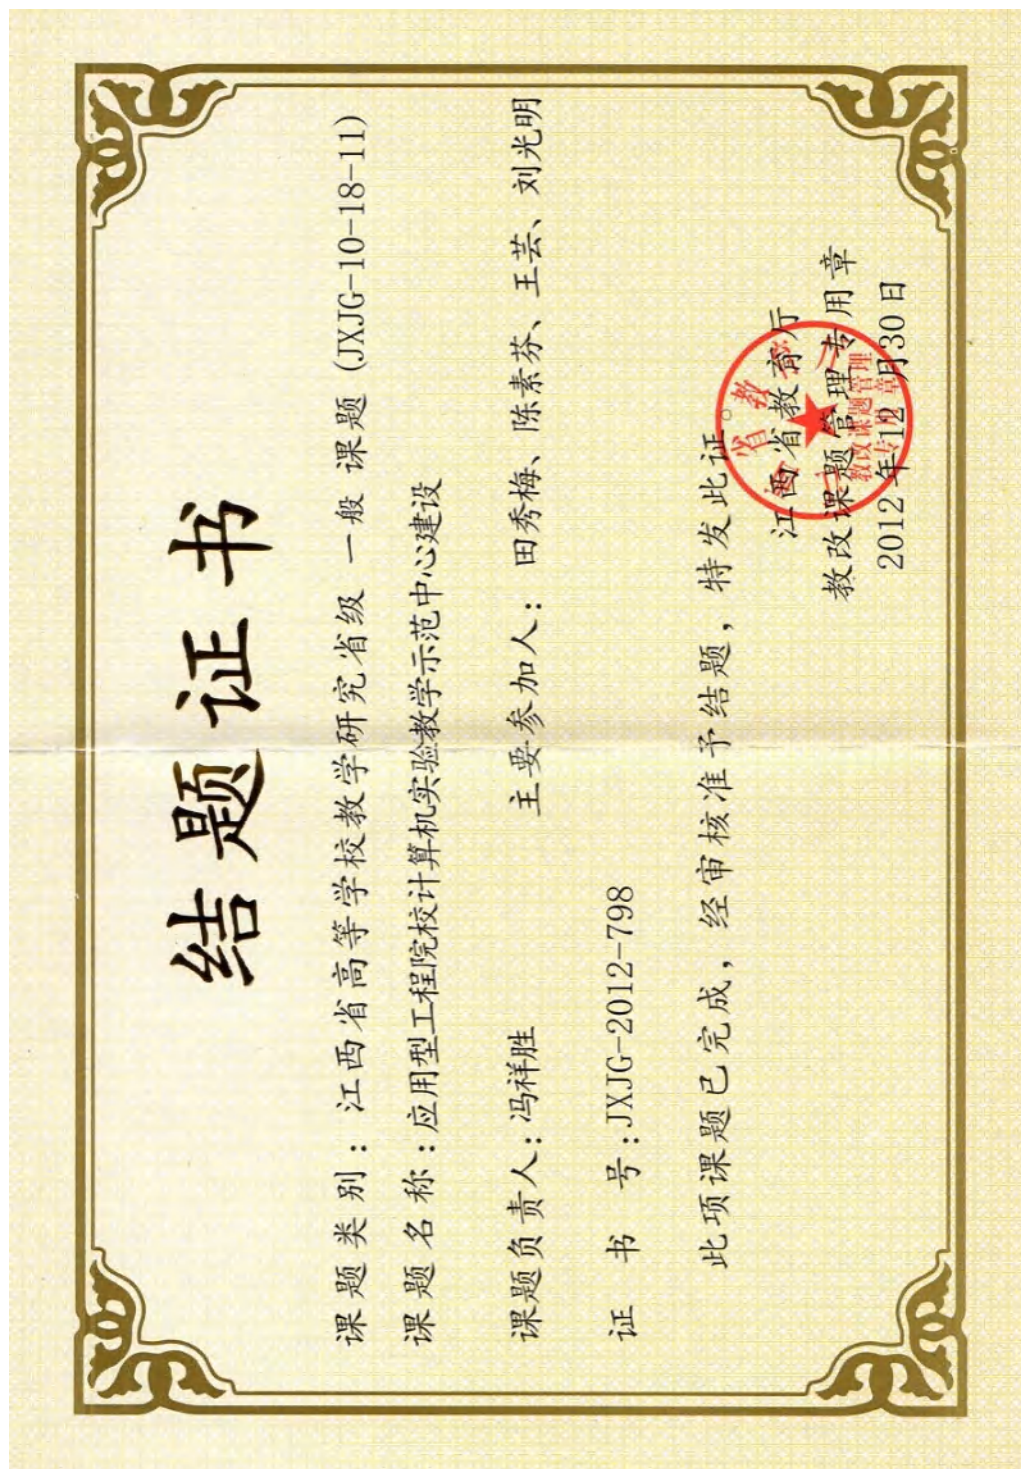 结题证书
课题类别：江西省高等学校教学研究省级一般课题(JXJG-10-18-11)
课题名称：应用型工程院校计算机实验教学示范中心建设
课题负责人：冯祥胜 主要参加人：田秀梅、陈素芬、王芸、刘光明
证书号：JXJG-2012-798
此项课题已完成，经审核准予结题，特发此证。
江西省教育厅
教改课题管理专用章
2012年12月30日
省教
教改课题管理
专用章